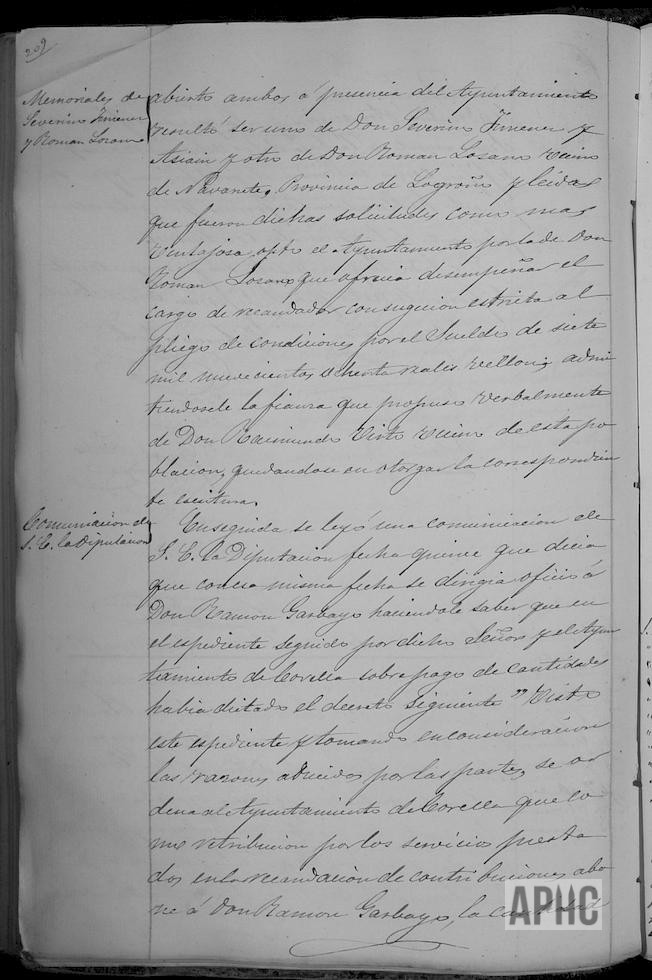 209
Memoriales de
Severino Jimenez
y Roman Losano
abierto ambos á presencia del Ayuntamiento
resultó ser uno de Don Severino Jimenez y
Asiain y otro de Don Roman Losano vecino
de Navarrete, Provincia de Logroño y leidas
que fueron dichas solicitudes como mas
ventajosa, optó el Ayuntamiento por la de Don
Roman Losano que ofrecia desempeñar el
cargo de recaudador con sugecion estricta al
pliego de condiciones por el Sueldo de siete
mil nuevecientos ochenta reales vellon, admi
tiendosele la fianza que propuso verbalmente
de Don Raimundo Virto vecino de esta po
blacion, quedandose en otorgar la correspondien
te escritura.
Comunicacion de
S. E. la Diputacion
En seguida se leyó una comunicacion de
S. E. la Diputacion fecha quince que decia
que con esa misma fecha se dirigia oficio á
Don Ramon Garbayo haciendole saber que en
el espediente seguido por dicho Señor y el Ayun
tamiento de Corella sobre pago de cantidades
habia dictado el decreto siguiente "Visto
este espediente y tomando en consideracion
las razones aducidas por las partes, se or
dena al Ayuntamiento de Corella que co
mo retribucion por los servicios presta
dos en la recaudacion de contribuciones abo
ne á Don Ramon Garbayo, la cantidad
APHC